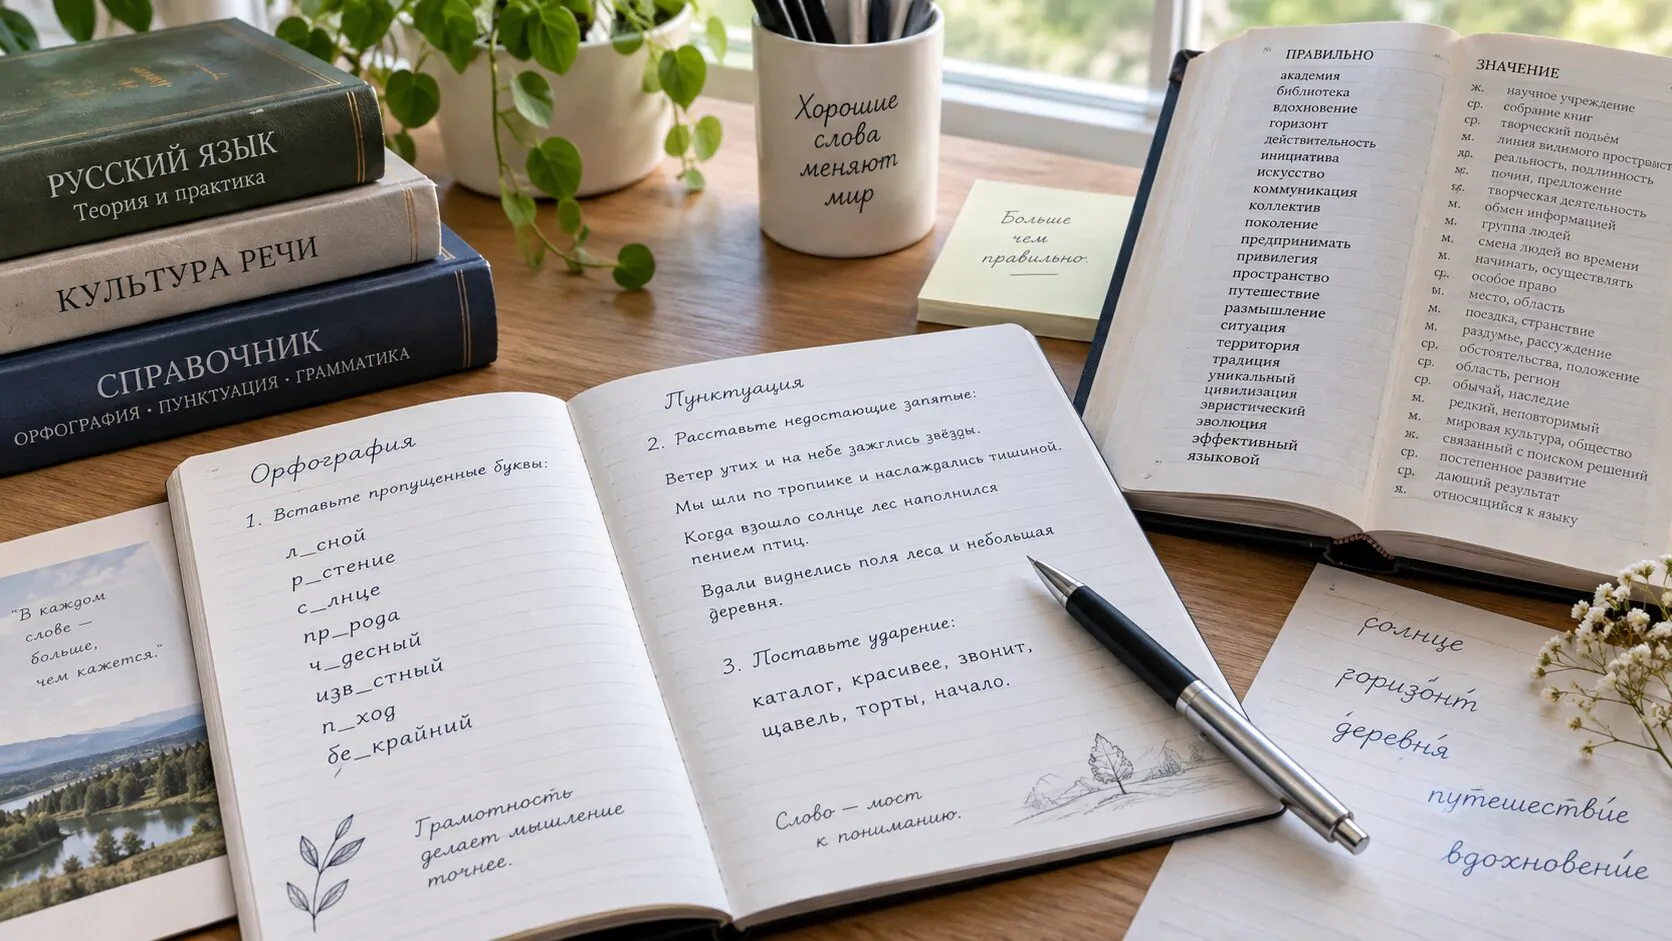 РУССКИЙ ЯЗЫК
Теория и практика
КУЛЬТУРА РЕЧИ
СПРАВОЧНИК
ОРФОГРАФИЯ • ПУНКТУАЦИЯ • ГРАММАТИКА
Хорошие
слова
меняют
мир
Больше
чем
правильно.
"В каждом
слове —
больше,
чем кажется."
Орфография
1. Вставьте пропущенные буквы:
л_сной
р_стение
с_лнце
пр_рода
ч_десный
изв_стный
п_ход
бе_крайний
Грамотность
делает мышление
точнее.
Пунктуация
2. Расставьте недостающие запятые:
Ветер утих и на небе зажглись звёзды.
Мы шли по тропиике и наслаждались тишиной.
Когда взошло солнце лес наполнился
пением птиц.
Вдали виднелись поля леса и небольшая
деревня.
3. Поставьте ударение:
каталог, красивее, звонит,
щавель, торты, начало.
Слово — мост
к пониманию.
ПРАВИЛЬНО
академия
библиотека
вдохновение
горизонт
действительность
инициатива
искусство
коммуникация
коллектив
поколение
предпринимать
привилегия
пространство
путешествие
размышление
ситуация
территория
традиция
уникальный
цивилизация
эвристический
эволюция
эффективный
языковой
ЗНАЧЕНИЕ
ж. научное учреждение
ср. собрание книг
ср. творческий подъём
м. линия видимого пространст
реальность, подлинность
почин, предложение
творческая деятельность
м. обмен информацией
м. группа людей
м. смена людей во времени
м. начинать, осуществлять
ср. особое право
место, область
м. поездка, странствие
м. раздумье, рассуждение
ср. обстоятельства, положение
ср. область, регион
ср. обычай, наследие
м. редкий, неповторимый
м. мировая культура, общество
ж. связанный с поиском решений
ср. постепенное развитие
ср. дающий результат
я. относящийся к языку
солнце
горизо́нт
деревня́
путешестви́е
вдохновени́е